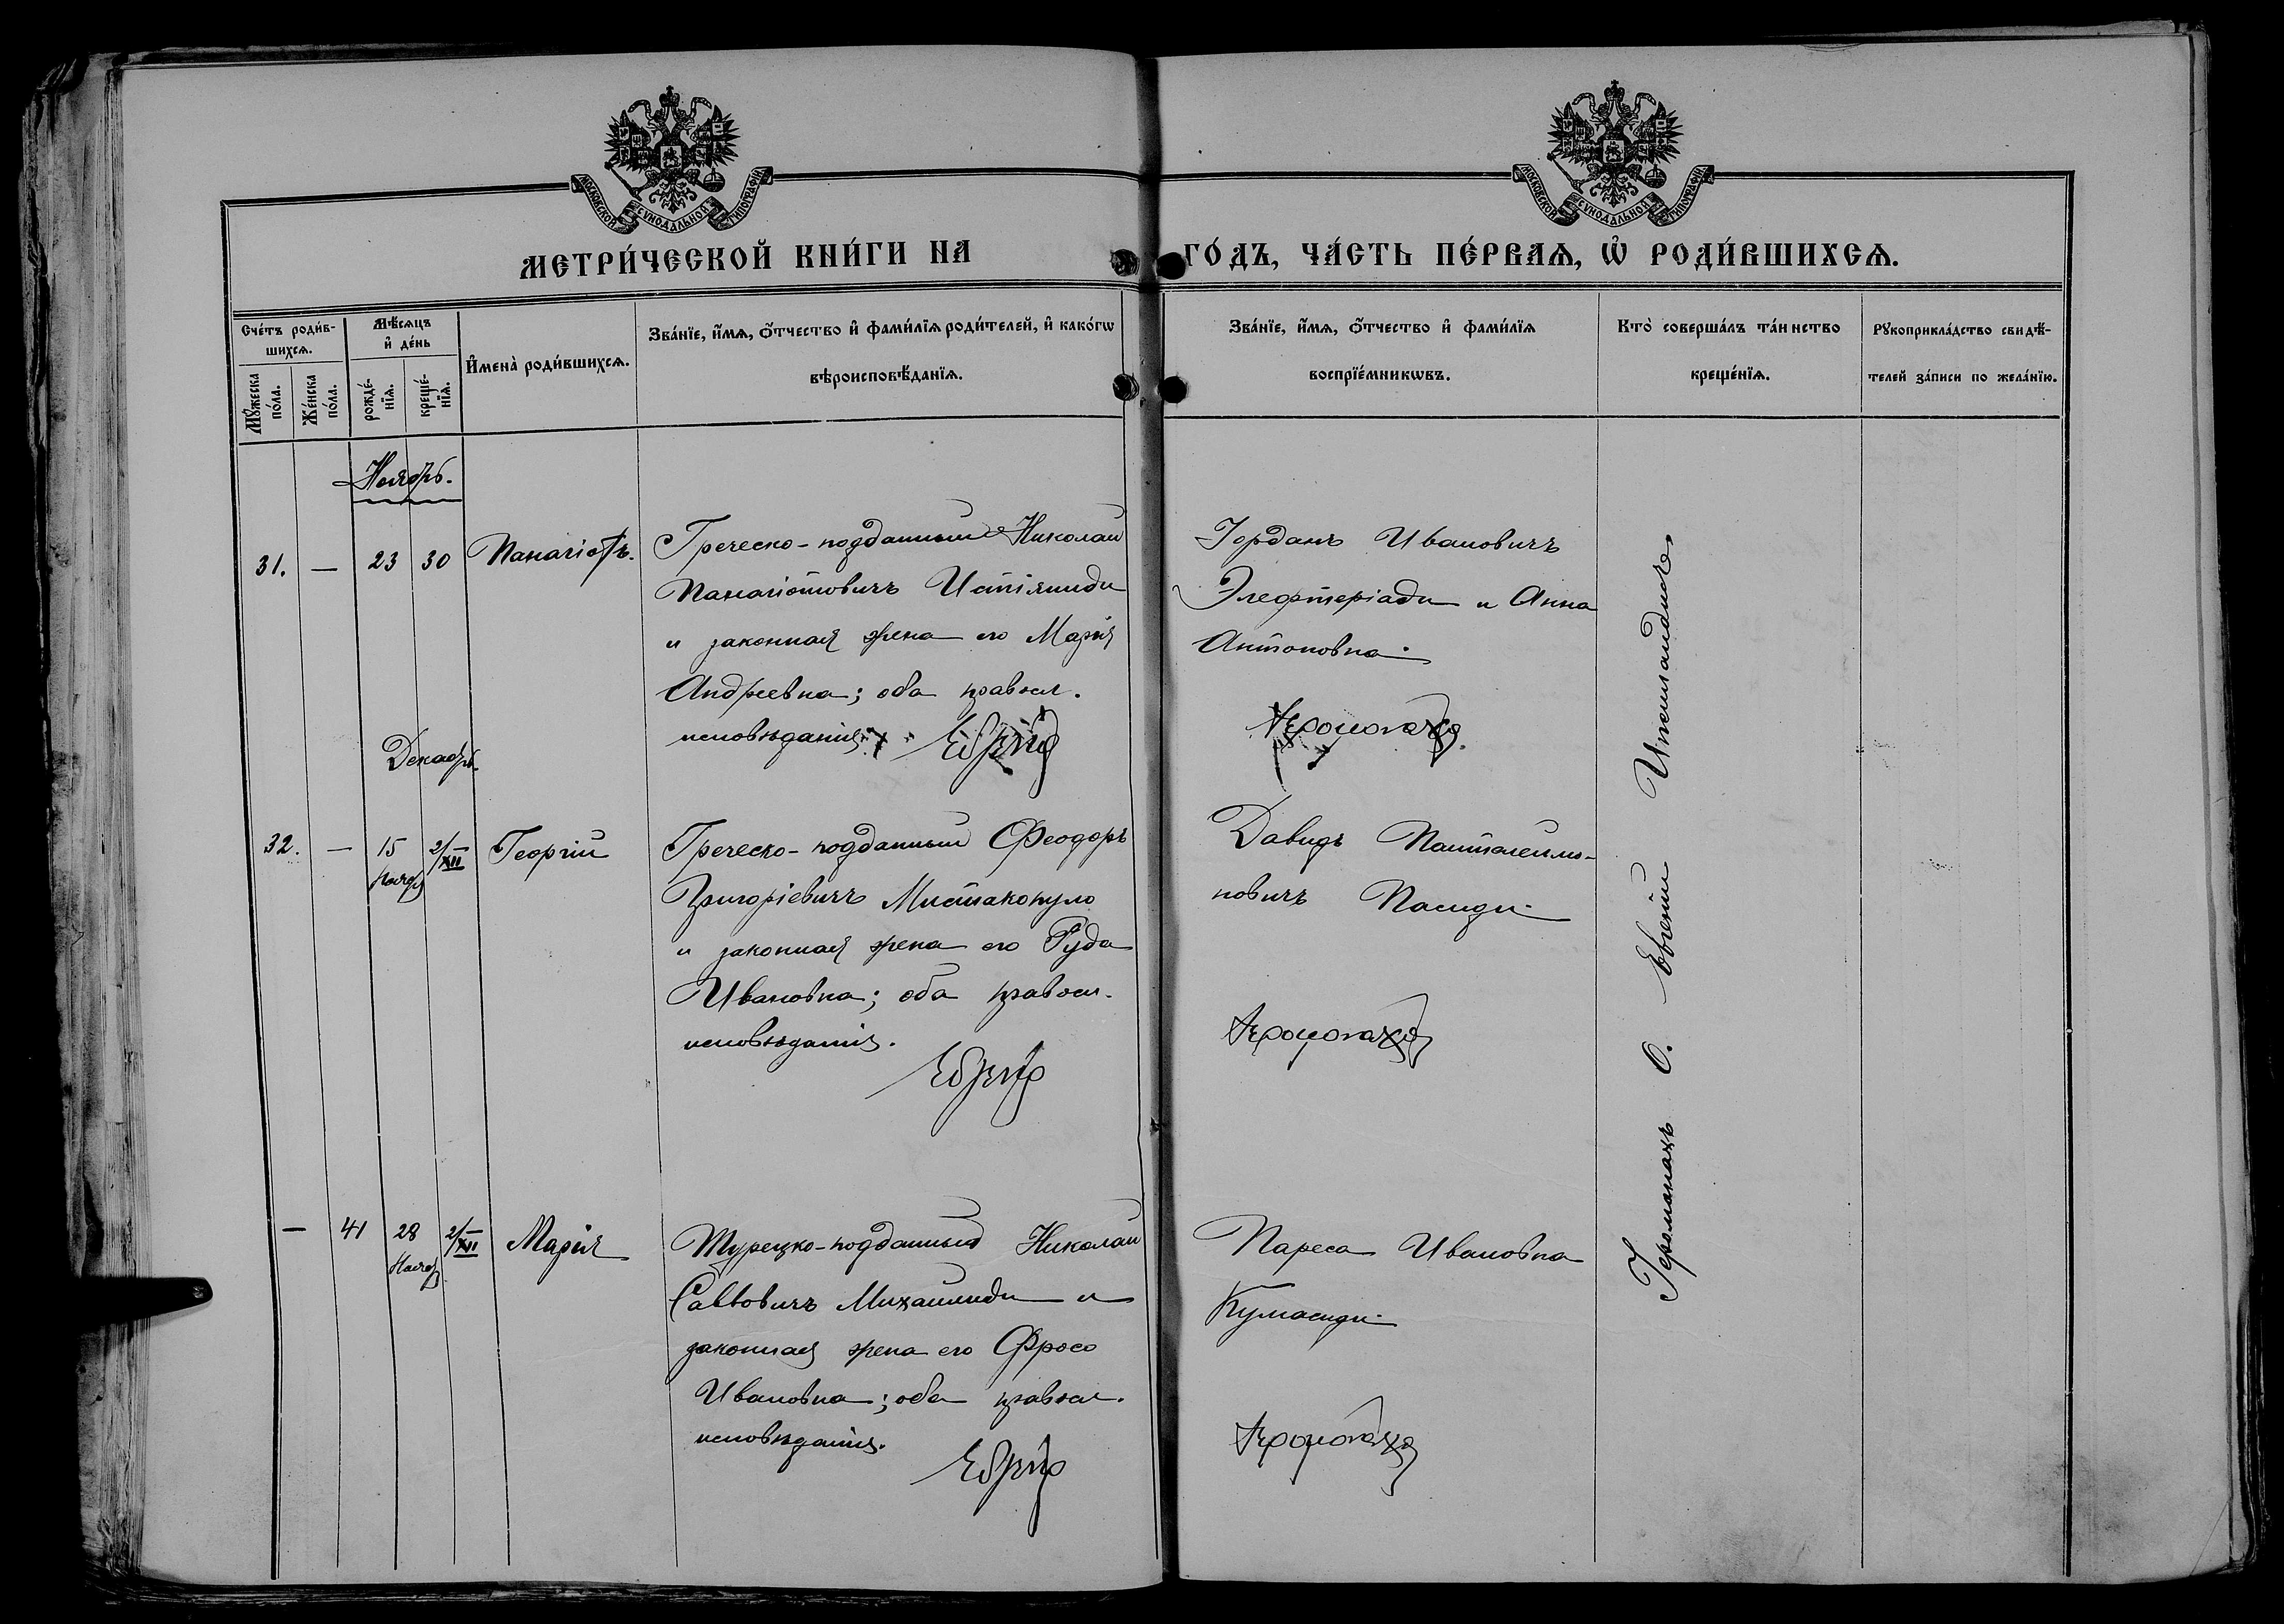 МОСКОВСКОЙ СѴНОДАЛЬНОЙ ТИПОГРАФІИ
МОСКОВСКОЙ СѴНОДАЛЬНОЙ ТИПОГРАФІИ
МЕТРИ́ЧЕСКОЙ КНИ́ГИ НА ГО́ДЪ, ЧА́СТЬ ПЕ́РВАѦ, Ѡ҆ РОДИ́ВШИХСѦ.
Сче́тъ роди́в-
шихсѧ.
Мꙋ́жеска
по́ла.
Же́нска
по́ла.
Мѣ́сѧцъ
и҆ де́нь
рожде́-
нїѧ.
креще́-
нїѧ.
И҆мена̀ роди́вшихсѧ.
Зва́нїе, и҆́мѧ, ѻ҆́тчество и҆ фами́лїѧ роди́телей, и҆ како́гѡ
вѣроисповѣ́данїѧ.
Зва́нїе, и҆́мѧ, ѻ҆́тчество и҆ фами́лїѧ
воспрїе́мникѡвъ.
Кто̀ соверша́лъ та́инство
креще́нїѧ.
Рꙋкоприкла́дство свидѣ́-
телей за́писи по жела́нїю.
Ноябрь.
31. — 23 30 Панагіотъ.
Греческо-подданный Николай
Панагіотовичъ
и законная жена его Марія
Андреевна; оба правосл.
исповѣданія.
Іорданъ Ивановичъ
Элефтеріади и Анна
Антоновна
Декабрь.
32. — 15 Нояб 2/XII Георгій
Греческо-подданный Феодоръ
Григоріевичъ Мистакопуло
и законная жена его
Ивановна; оба правосл.
исповѣданія.
Давидъ Пантелеймо-
новичъ Пасиди
— 41 28 Нояб 2/XII Марія
Турецко-подданный Николай
Саввовичъ Михаилиди и
законная жена его Фросо
Ивановна; оба правосл.
исповѣданія.
Пареса Ивановна
Кумасиди
Іеромонахъ О. Евгеній